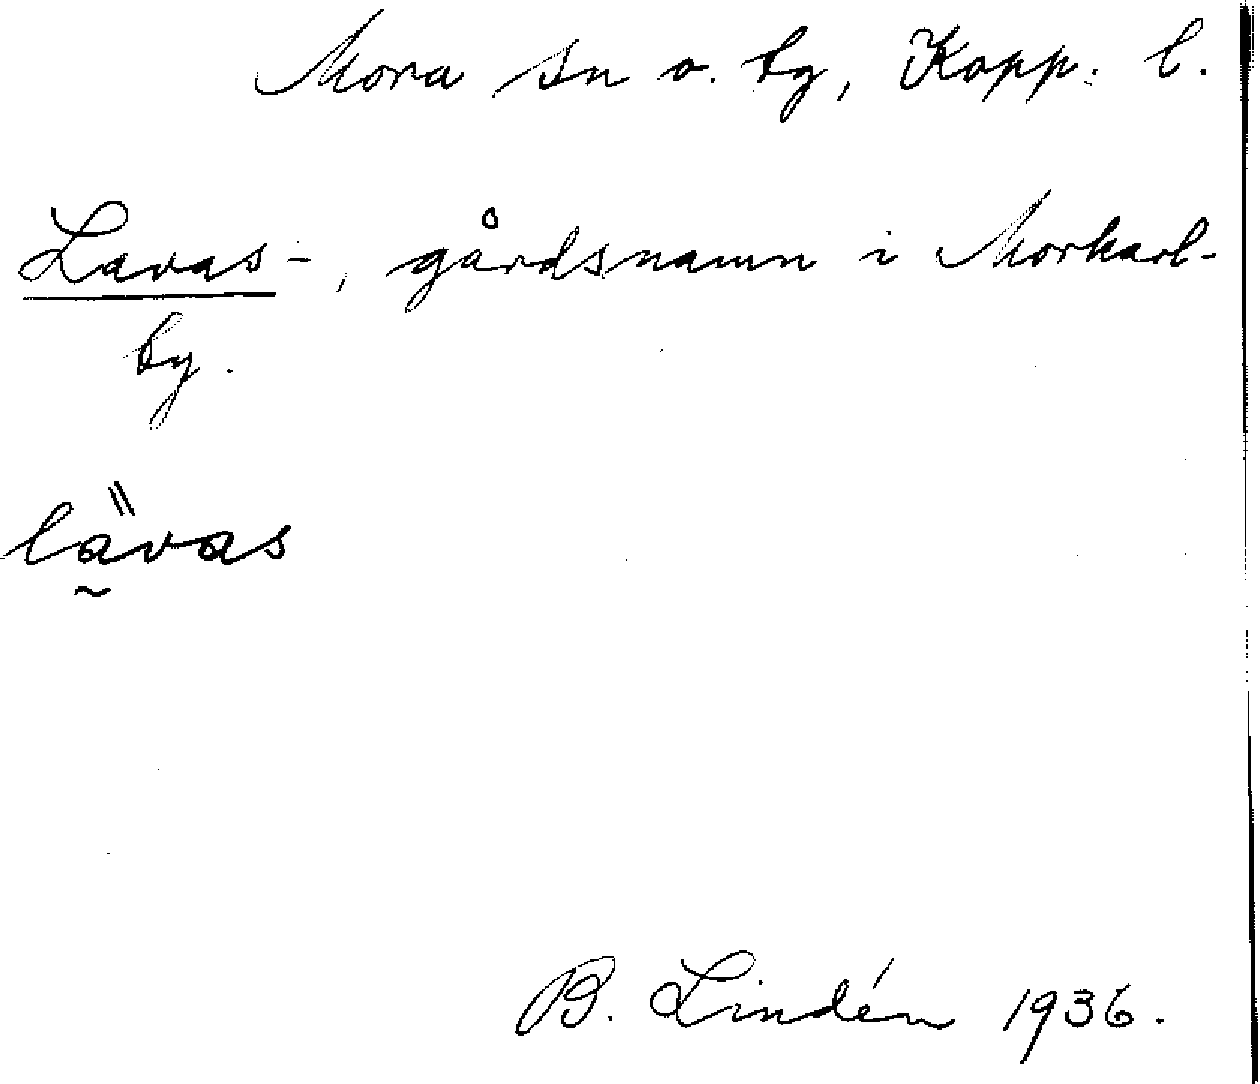 Mora sn o. by, Kopp. l.
Lavas-, gårdsnamn i Morkarl-
by.
la̰̋vas
B. Lindén 1936.